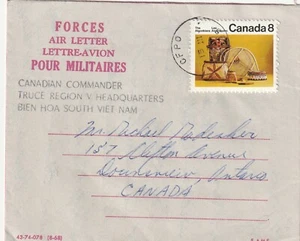 FORCES
AIR LETTER
LETTRE-AVION
POUR MILITAIRES
Canada 8
CANADIAN COMMANDER
TRUCE REGION V HEADQUARTERS
BIEN HOA SOUTH VIET NAM
Mr Michael
157 Clifton Avenue
Downsview, Ontario
CANADA